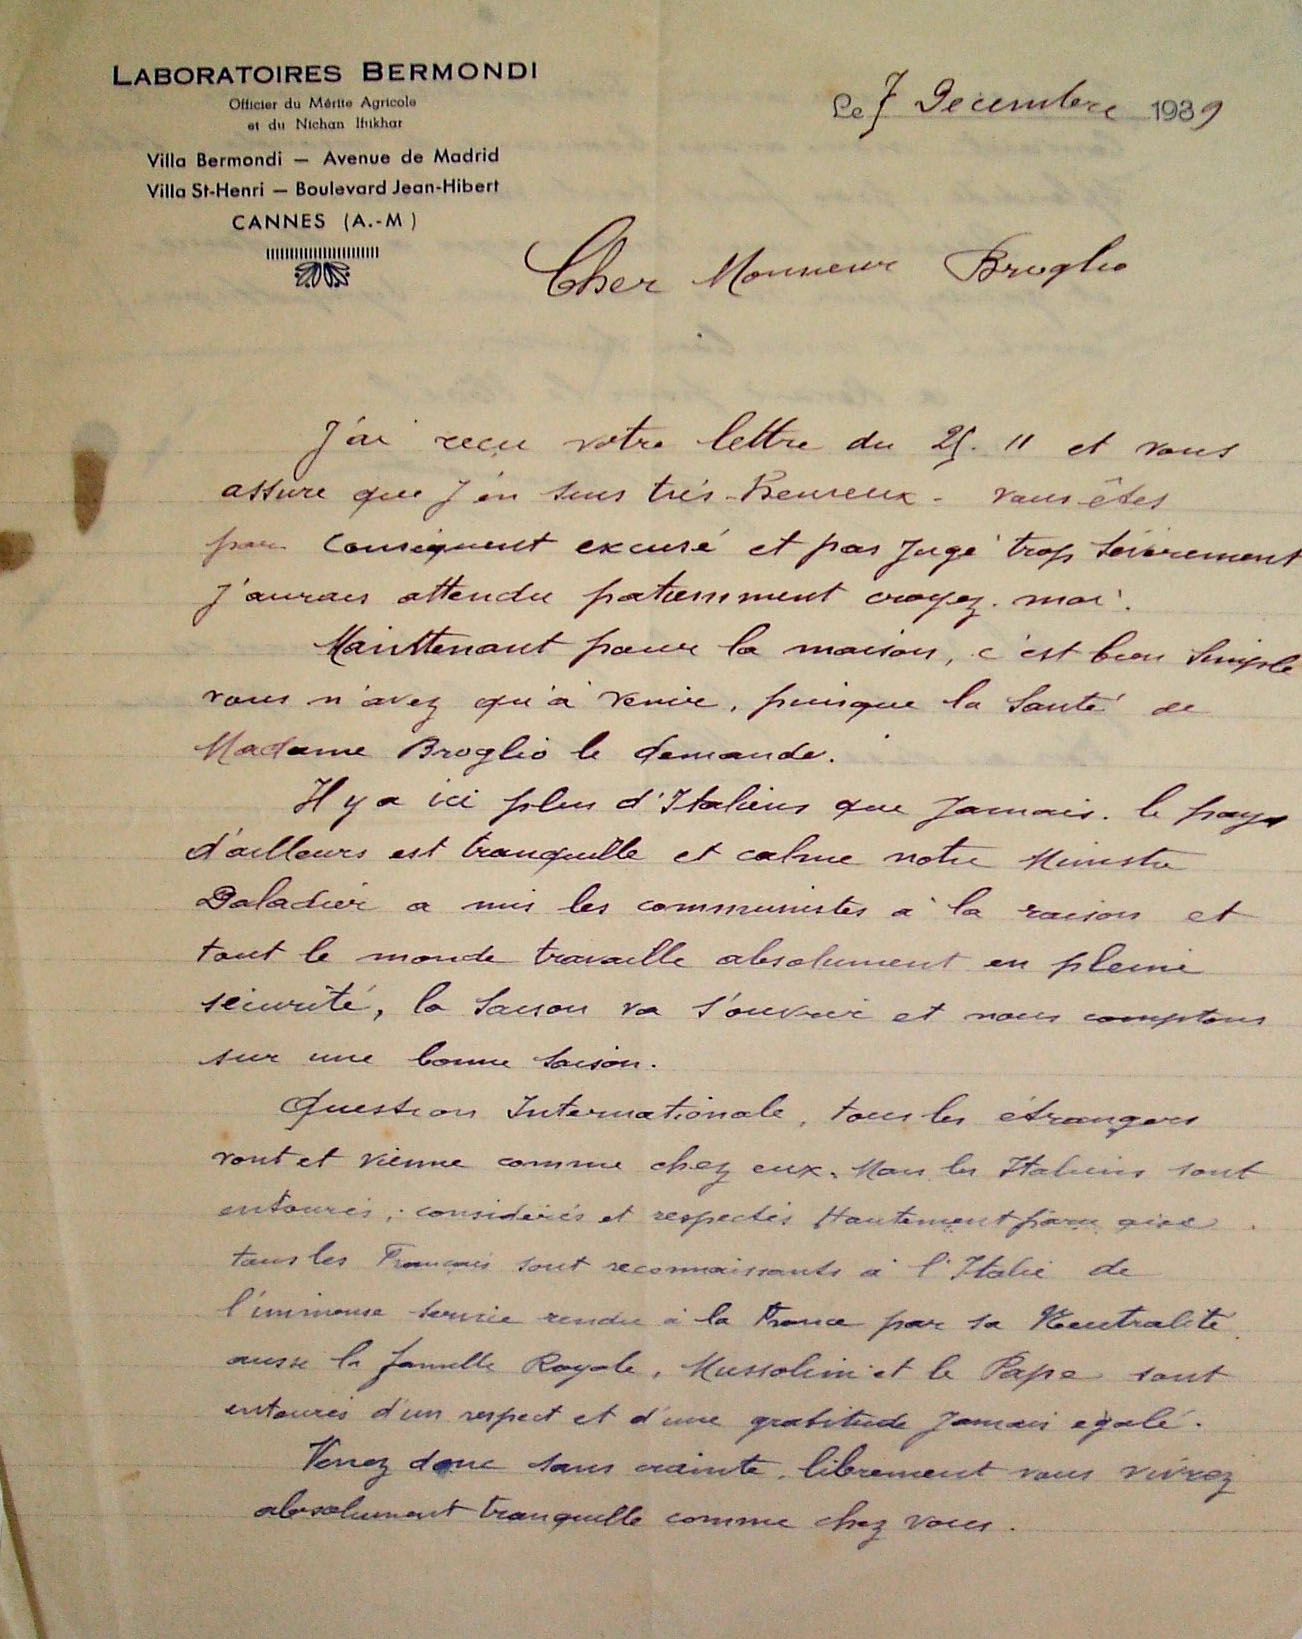 LABORATOIRES BERMONDI
Officier du Mérite Agricole
et du Nichan Iftikhar
Villa Bermondi — Avenue de Madrid
Villa St-Henri — Boulevard Jean-Hibert
CANNES (A.-M)
Le 7 Decembre 1939
Cher Monsieur Broglio
J'ai reçu votre lettre du 25. 11 et vous
assure que j'en suis très Heureux - vous êtes
par Conséquent excusé et pas Jugé trop Sévèrement
J'aurais attendu patiemment croyez-moi.
Maintenant pour la maison, c'est bien Simple
vous n'avez qu'à venir, puisque la Santé de
Madame Broglio le demande.
Il y a ici plus d'Italiens que Jamais. le pays
d'ailleurs est tranquille et calme notre Ministre
Daladier a mis les communistes à la raison et
tout le monde travaille absolument en pleine
sécurité, la Saison va s'ouvrir et nous comptons
sur une bonne Saison.
Question Internationale, tous les étrangers
vont et vienne comme chez eux. Mais les Italiens sont
entourés, considérés et respectés Hautement
tous les Français sont reconnaissants à l'Italie de
l'immense Service rendu à la France par sa Neutralité
aussi la famille Royale, Mussolini et le Pape sont
entourés d'un respect et d'une gratitude Jamais egalé.
Venez donc sans crainte, librement vous vivrez
absolument tranquille comme chez vous.